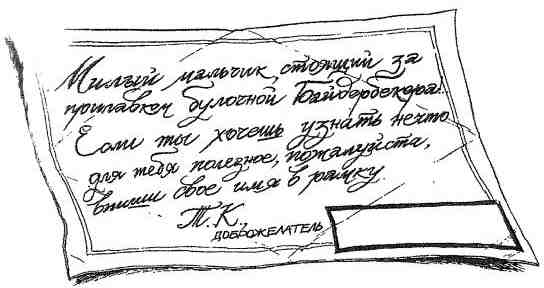 Милый мальчик, стоящий за
прилавком булочной Байдербекера!
Если ты хочешь узнать нечто
для тебя полезное, пожалуйста,
впиши свое имя в рамку.
Т. К.,
ДОБРОЖЕЛАТЕЛЬ